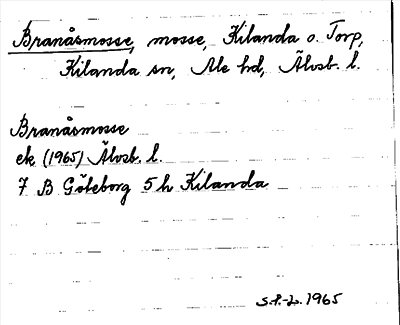 Branåsmosse, mosse, Kilanda o. Torp,
Kilanda sn, Ale hd, Älvsb. l.
Branåsmosse
ek (1965) Älvsb. l.
7 B Göteborg 5 h Kilanda
S.F.-L. 1965